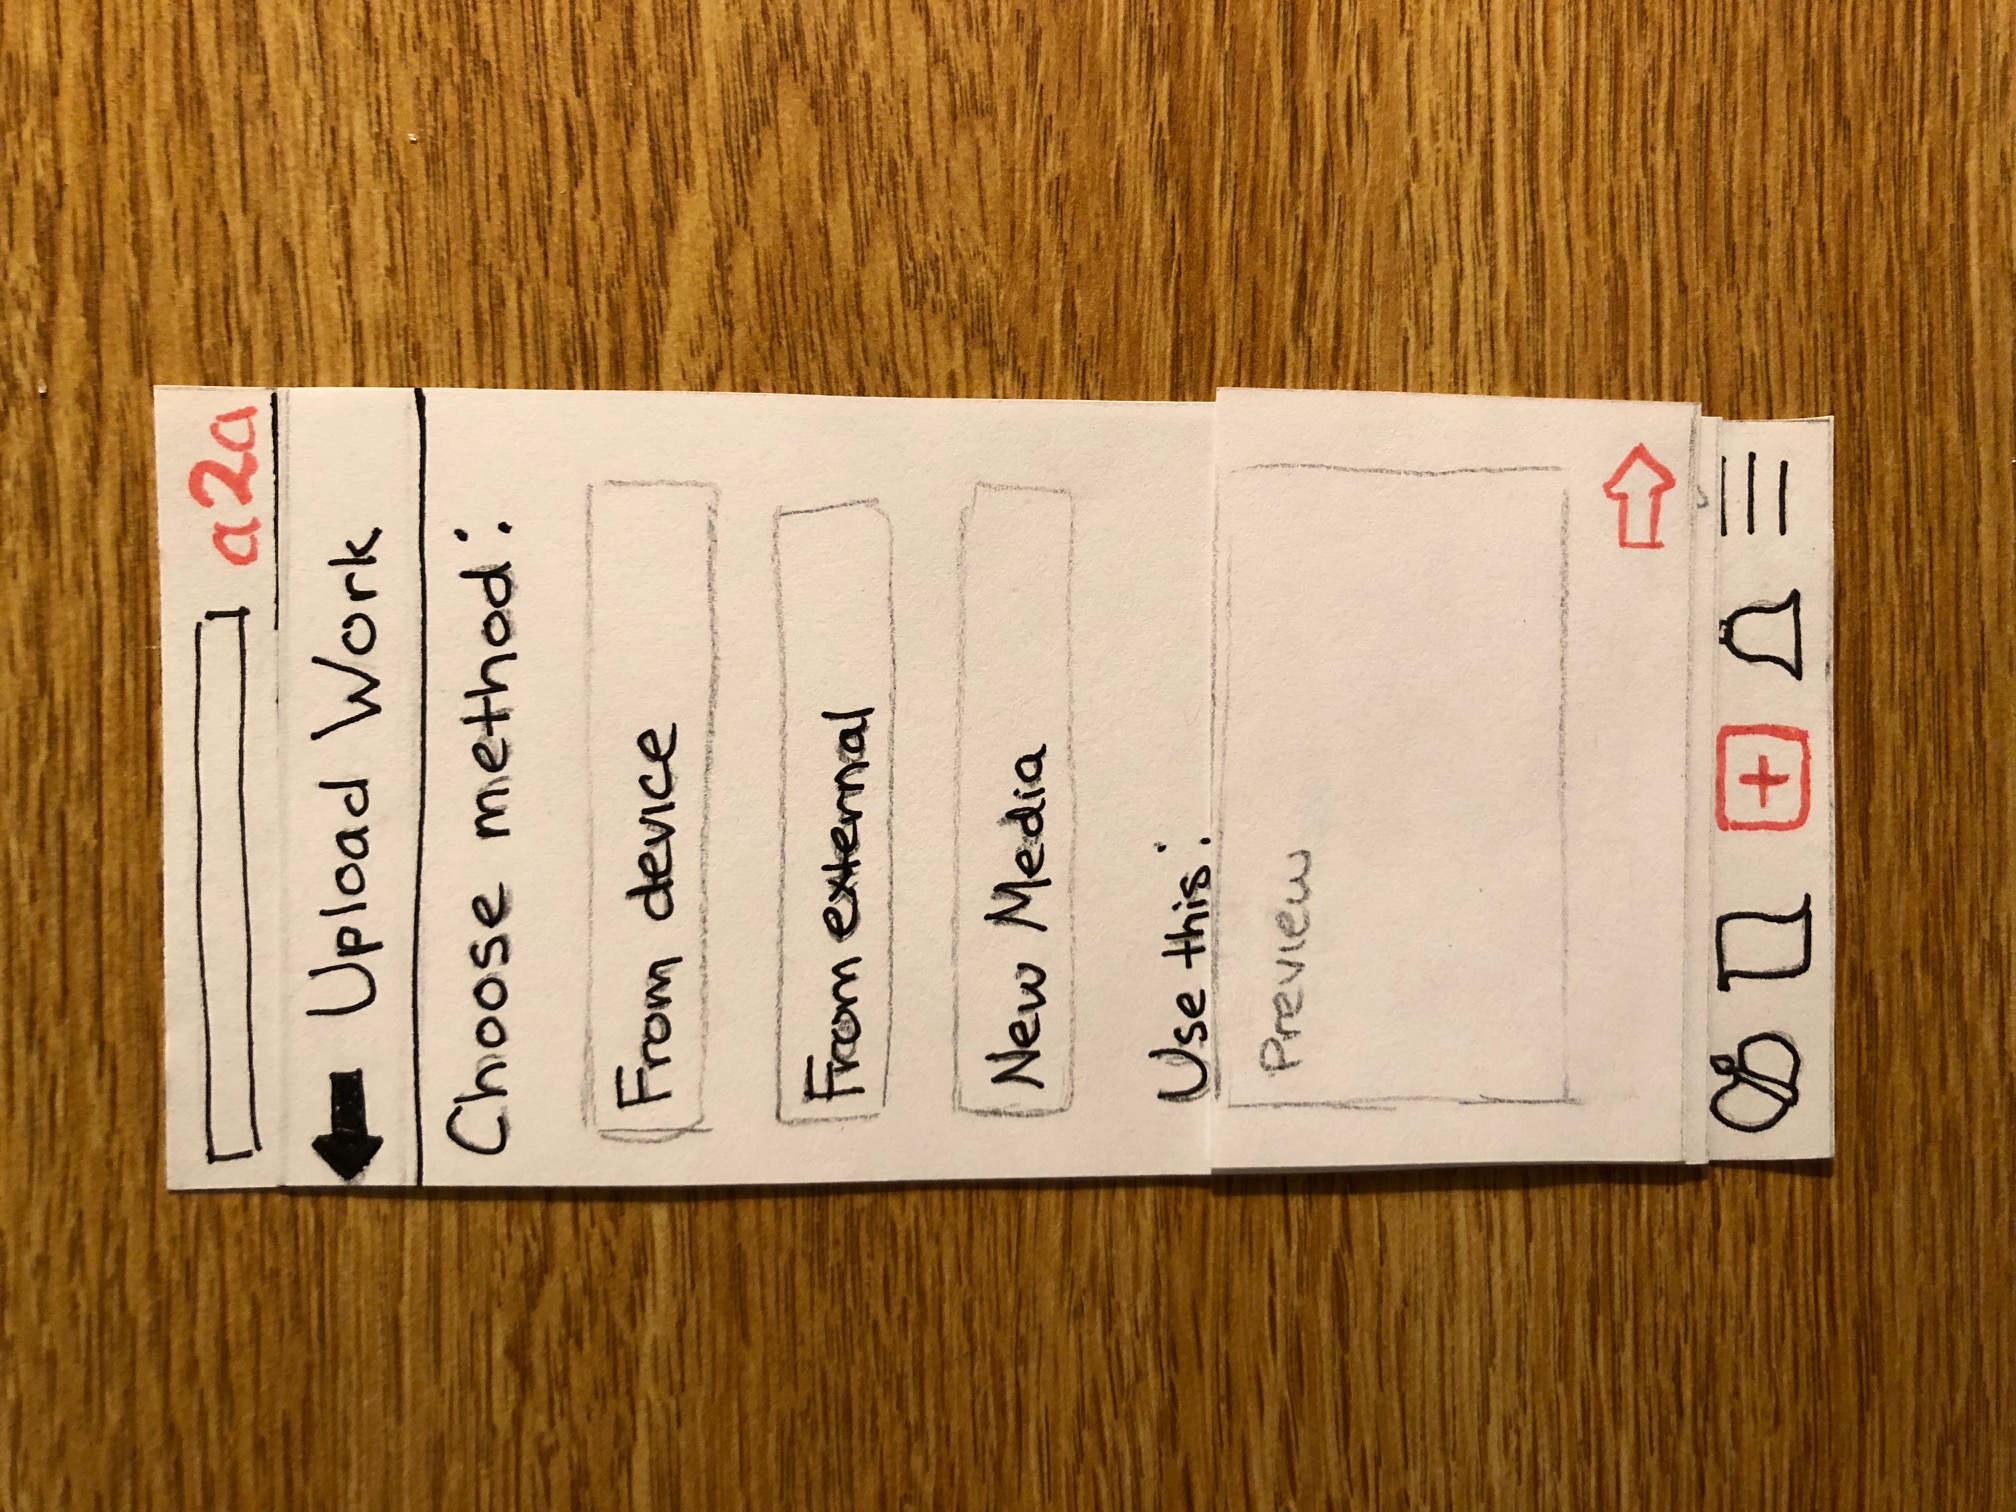 a2a
Upload Work
Choose method:
From device
From external
New Media
Use this:
Preview